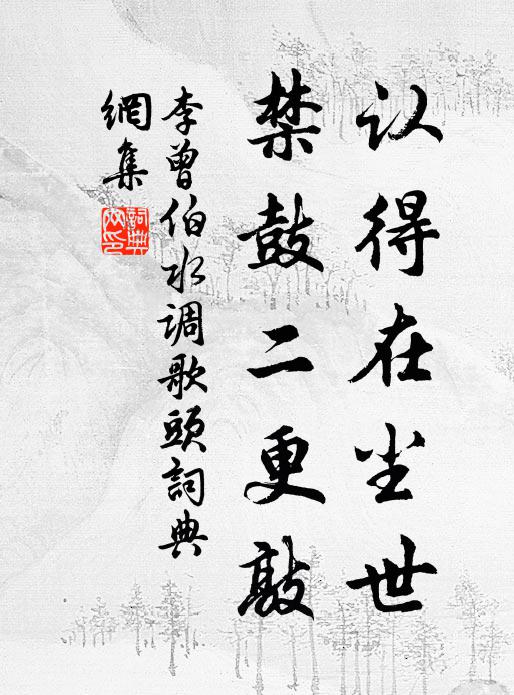 认得在尘世
禁鼓二更敲
李曾伯水调歌頭詞典
網集
詞典
网印